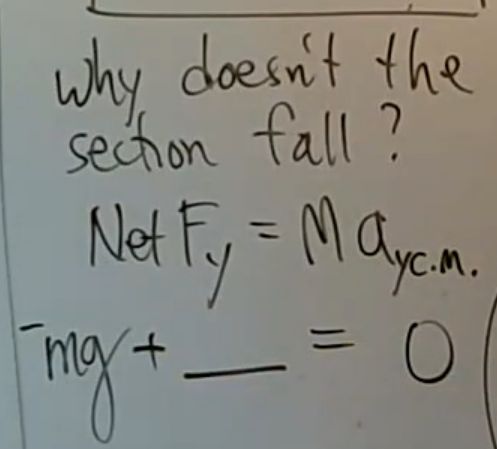 why doesn't the
section fall?
Net Fy = M ayc.m.
-mg + ___ = 0